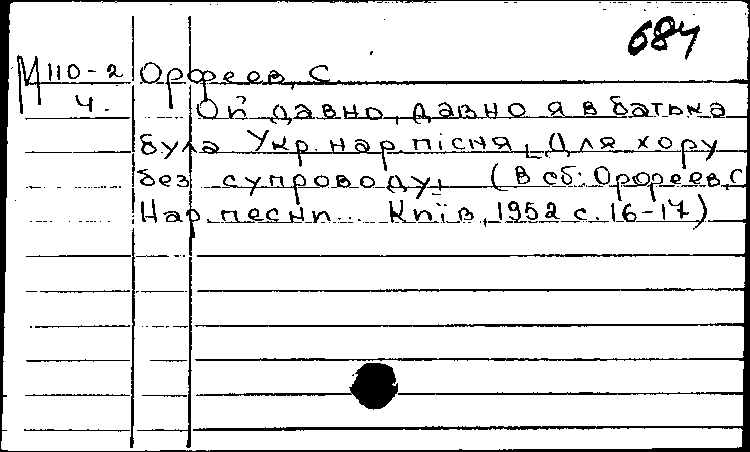 684
М110-2 Орфеев, С.
4. Ой давно, давно я в батька
була Укр. нар. пісня [Для хору
без супроводу] (В сб: Орфеев, С
Нар. песни... Київ, 1952 с. 16-17)